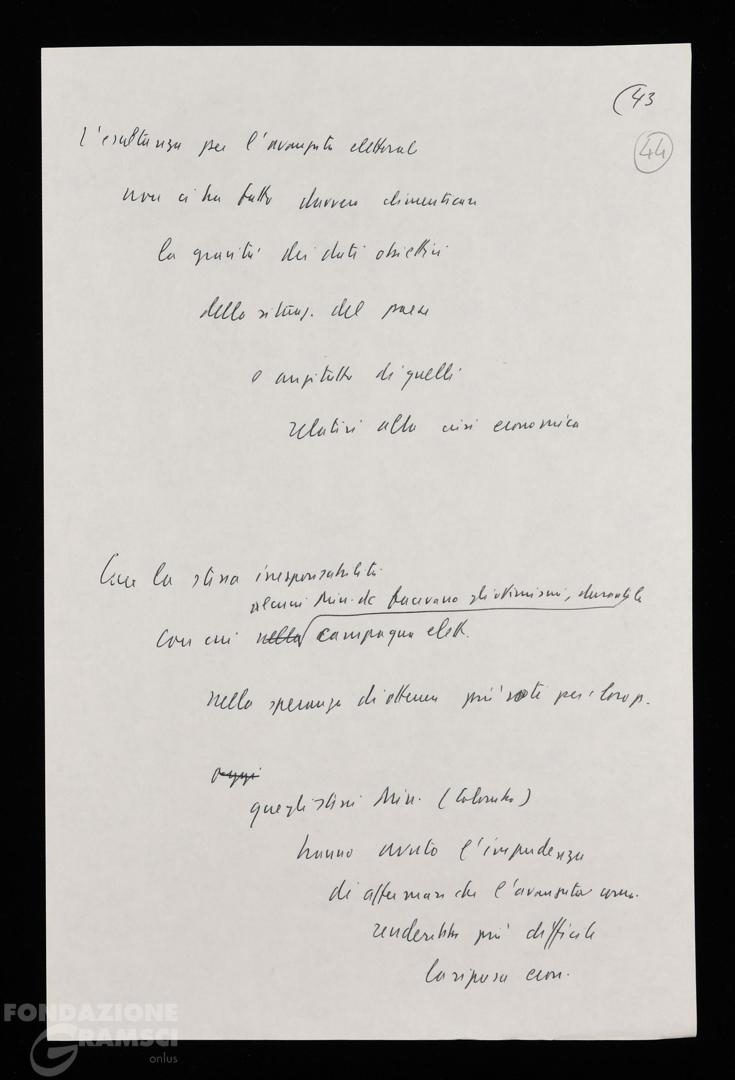 (43
44
L'esultanza per l'avanzata elettorale
non ci ha fatto davvero dimenticare
la gravità dei dati obiettivi
della situaz. del paese
e anzitutto di quelli
relativi alla crisi economica
Con la stessa irresponsabilità
alcuni Min. dc facevano gli ottimisti, durante la
con cui nella campagna elett.
nella speranza di ottenere più voti per i loro p.
oggi
quegli stessi Min. (Colombo)
hanno avuto l'impudenza
di affermare che l'avanzata com.
renderebbe più difficile
la ripresa econ.
FONDAZIONE
GRAMSCI
onlus